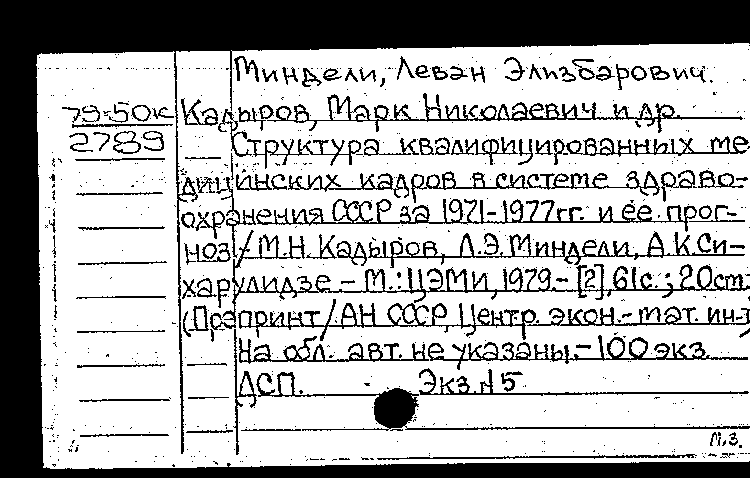 Миндели, Леван Элизбарович.
79-50к Кадыров, Марк Николаевич и др.
2789 Структура квалифицированных ме-
дицинских кадров в системе здраво-
охранения СССР за 1971-1977гг. и ее прог-
ноз / М.Н. Кадыров, Л.Э. Миндели, А.К. Си-
харулидзе. - М.: ЦЭМИ, 1979. - [2], 61с.; 20см. -
(Препринт / АН СССР, Центр. экон.-мат. ин-т)
На обл. авт. не указаны. - 100 экз.
ДСП. Экз. № 5
М.З.